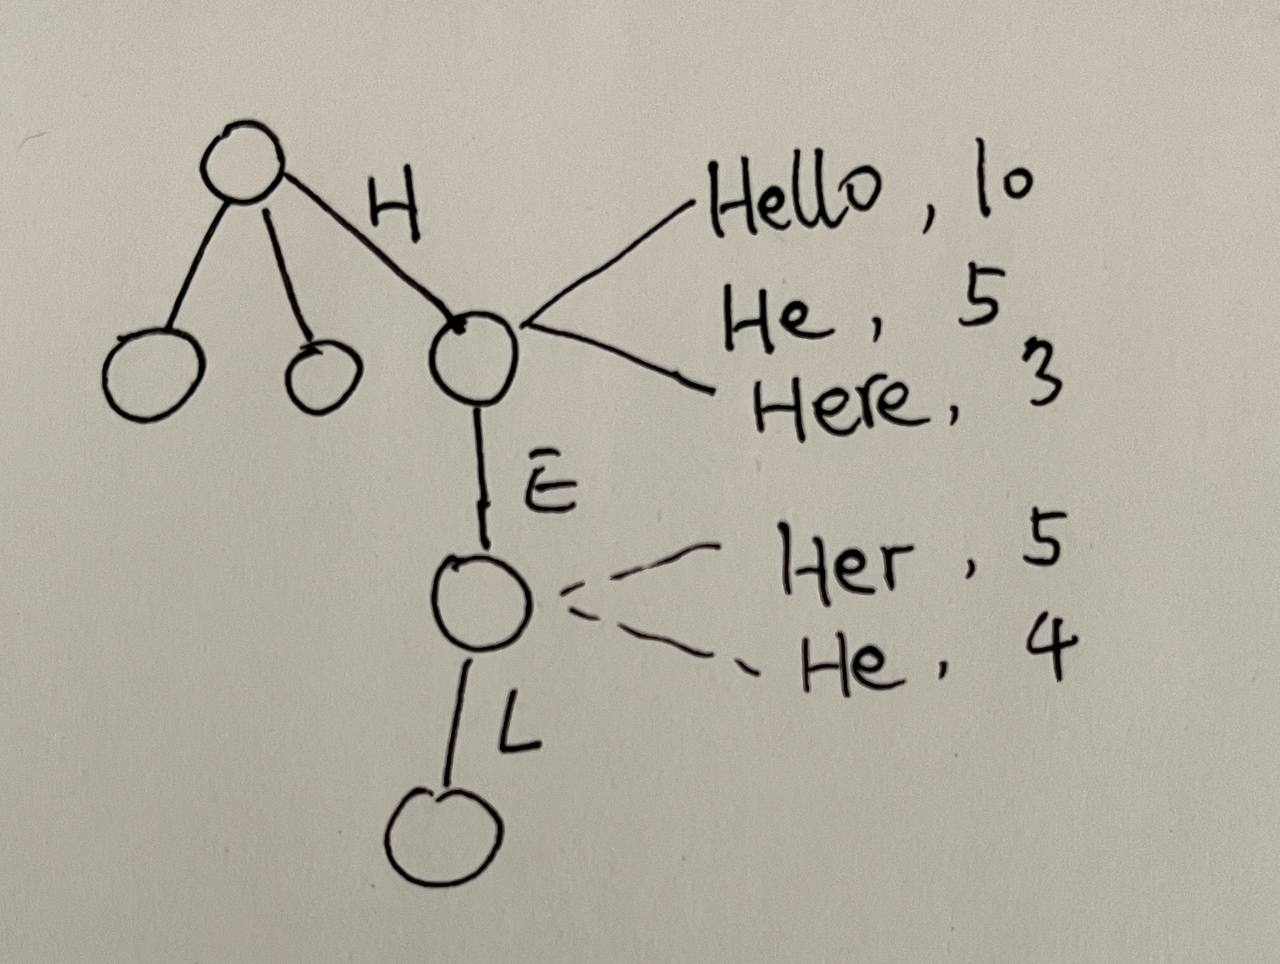 H
Hello, 10
He, 5
Here, 3
E
Her, 5
He, 4
L